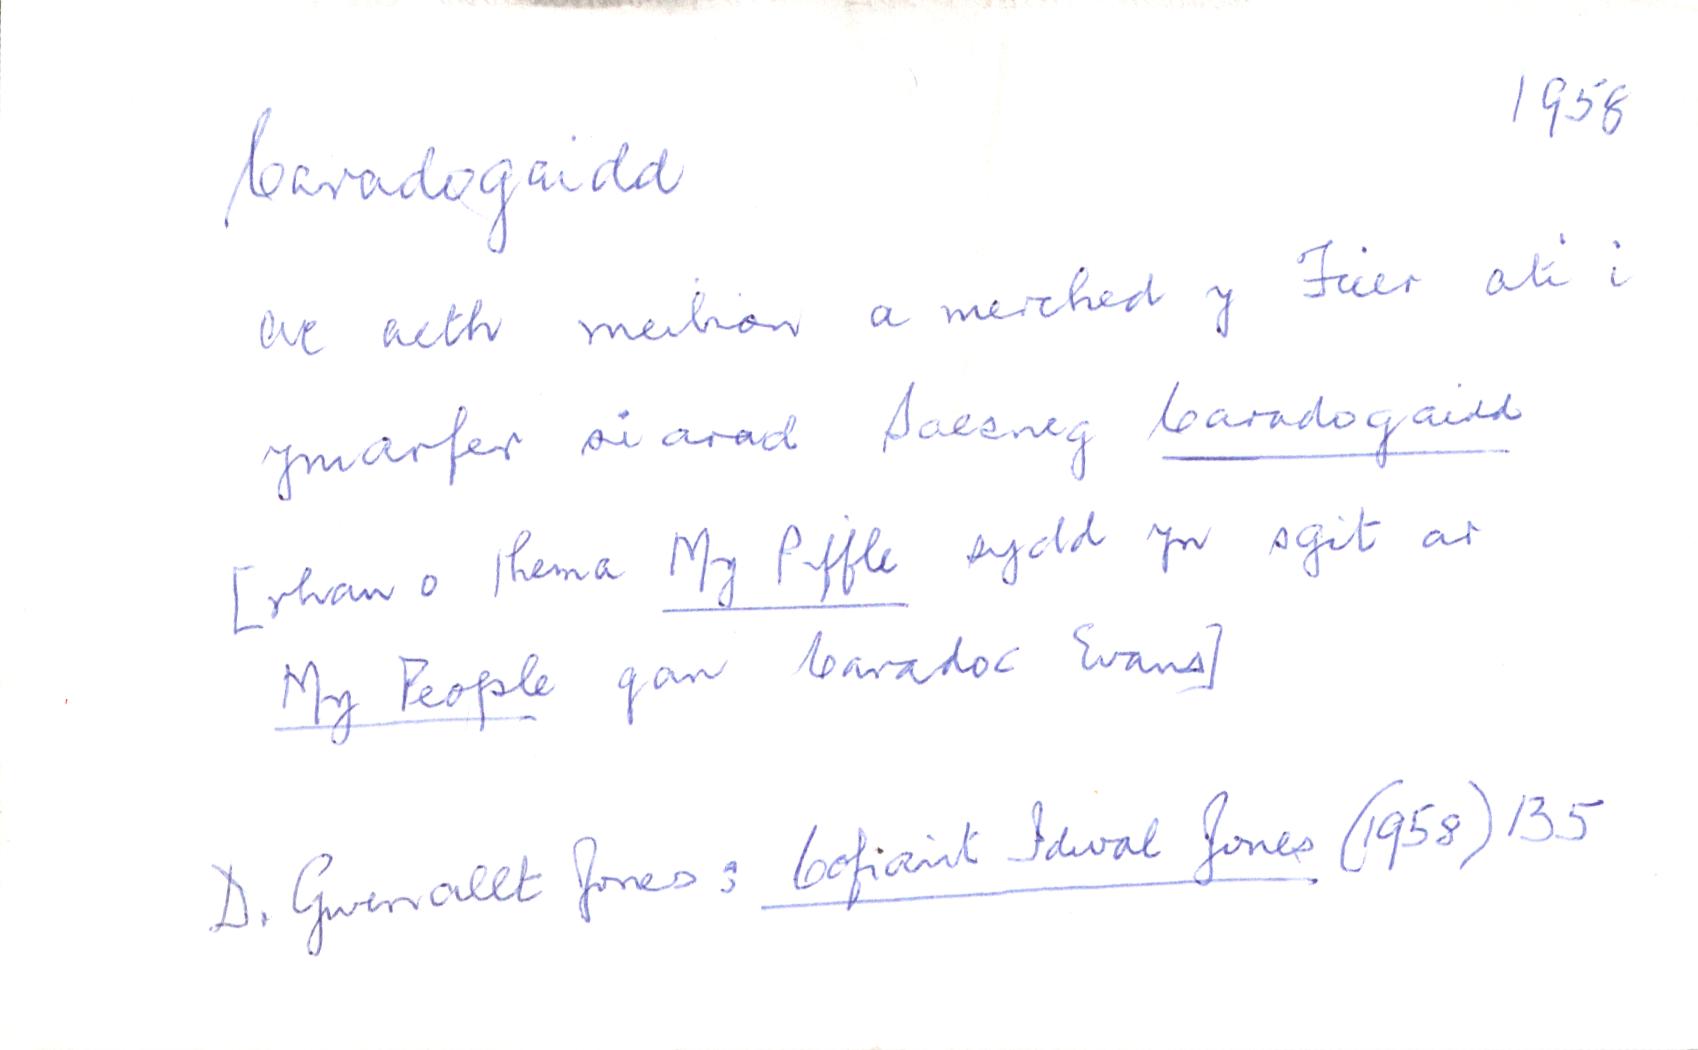 1958
Caradogaidd
ac aeth meibion a merched y Ficer ati i
ymarfer siarad Saesneg Caradogaidd
[rhan o thema My Piffle sydd yn sgit ar
My People gan Caradoc Evans]
D. Gwenallt Jones: Cofiant Idwal Jones (1958) 135